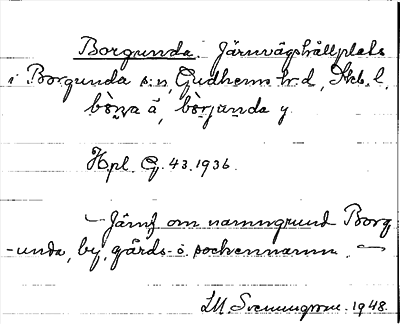 Borgunda Järnvägshållplats
i Borgunda s:n, Gudhems h:d, Skb. l.
Hpl. G. 43.1936.
Jämf om namngrund Borg
-unda, by, gårds- o sockennamn.
LM Svenungsson. 1948.